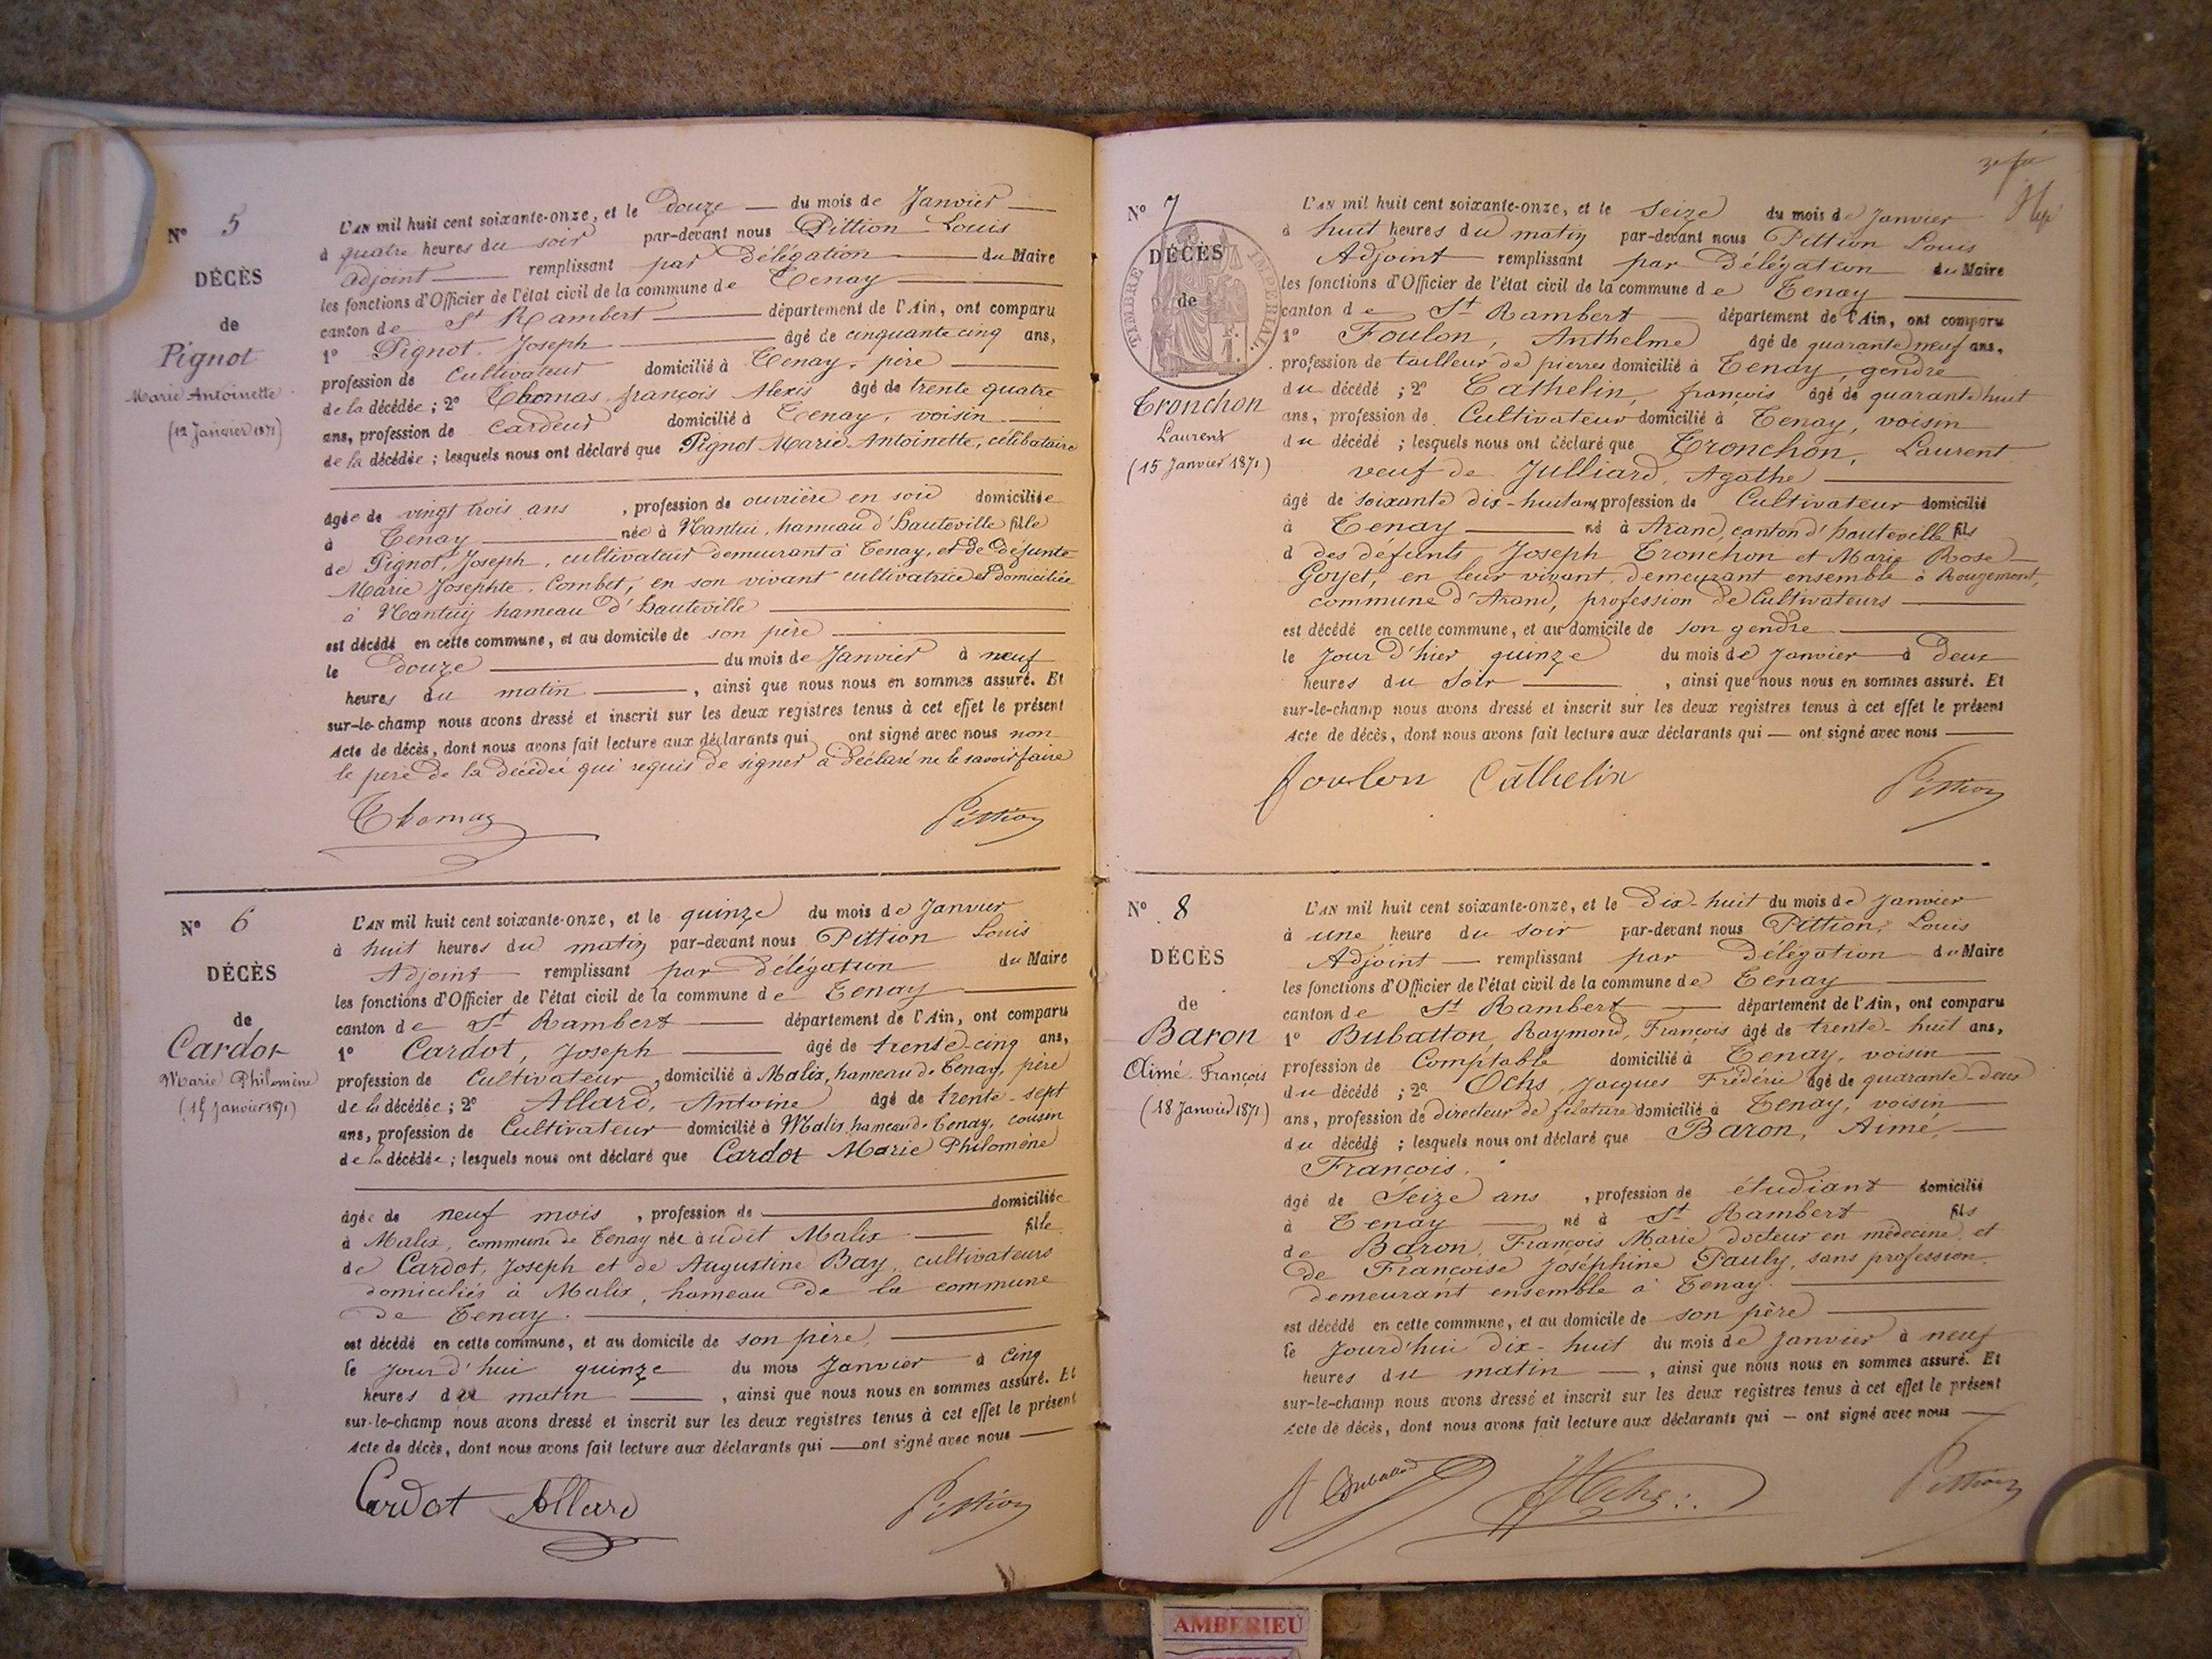 N° 5
DÉCÈS
de
Pignot
Marie Antoinette
(12 Janvier 1871)
L'AN mil huit cent soixante-onze, et le douze du mois de Janvier
à quatre heures du soir par-devant nous Pittion Louis
adjoint remplissant par Délégation du Maire
les fonctions d'Officier de l'état civil de la commune de Tenay
canton de St Rambert département de l'Ain, ont comparu
1° Pignot Joseph âgé de cinquante cinq ans,
profession de Cultivateur domicilié à Tenay, père
de la décédée ; 2° Thomas, françois Alexis âgé de trente quatre
ans, profession de Cardeur domicilié à Tenay, voisin
de la décédée ; lesquels nous ont déclaré que Pignot Marie Antoinette, célibataire
âgée de vingt trois ans , profession de ouvrière en soie domiciliée
à Tenay née à Nantui, hameau d'hauteville fille
de Pignot, Joseph, cultivateur demeurant à Tenay, et de défunte
Marie Josephte Combet, en son vivant cultivatrice et domiciliée
à Nantuy hameau d'hauteville
est décédé en cette commune, et au domicile de son père
le douze du mois de Janvier à neuf
heures du matin , ainsi que nous nous en sommes assuré. Et
sur-le-champ nous avons dressé et inscrit sur les deux registres tenus à cet effet le présent
Acte de décès, dont nous avons fait lecture aux déclarants qui ont signé avec nous non
le père de la décédée qui requis de signer a déclaré ne le savoir faire
Thomas Pittion
N° 6
DÉCÈS
de
Cardot
Marie Philomène
(15 Janvier 1871)
L'AN mil huit cent soixante-onze, et le quinze du mois de Janvier
à huit heures du matin par-devant nous Pittion Louis
Adjoint remplissant par Délégation du Maire
les fonctions d'Officier de l'état civil de la commune de Tenay
canton de St Rambert département de l'Ain, ont comparu
1° Cardot, Joseph âgé de trente-cinq ans,
profession de Cultivateur, domicilié à Malix, hameau de Tenay, père
de la décédée ; 2° Allard, Antoine âgé de trente-sept
ans, profession de Cultivateur domicilié à Malix, hameau de Tenay, cousin
de la décédée ; lesquels nous ont déclaré que Cardot Marie Philomène
âgée de neuf mois , profession de domiciliée
à Malix, commune de Tenay née audit Malix fille
de Cardot, Joseph et de Augustine Bay, cultivateurs
domiciliés à Malix, hameau de la commune
de Tenay.
est décédé en cette commune, et au domicile de son père,
le jourd'hui quinze du mois Janvier à cinq
heures du matin , ainsi que nous nous en sommes assuré. Et
sur-le-champ nous avons dressé et inscrit sur les deux registres tenus à cet effet le présent
Acte de décès, dont nous avons fait lecture aux déclarants qui ont signé avec nous
Cardot Allard Pittion
N° 7
DÉCÈS
de
TIMBRE IMPÉRIAL
Tronchon
Laurent
(15 Janvier 1871)
L'AN mil huit cent soixante-onze, et le Seize du mois de Janvier
à huit heures du matin par-devant nous Pittion Louis
Adjoint remplissant par Délégation du Maire
les fonctions d'Officier de l'état civil de la commune de Tenay
canton de St Rambert département de l'Ain, ont comparu
1° Foulon, Anthelme âgé de quarante neuf ans,
profession de tailleur de pierres domicilié à Tenay, gendre
du décédé ; 2° Cathelin, françois âgé de quarante huit
ans, profession de Cultivateur domicilié à Tenay, voisin
du décédé ; lesquels nous ont déclaré que Tronchon, Laurent
veuf de Julliard, Agathe
âgé de soixante dix-huit ans profession de Cultivateur domicilié
à Tenay né à Arand, canton d'hauteville fils
d des défunts Joseph Tronchon et Marie Rose
Goyet, en leur vivant demeurant ensemble à Rougemont,
commune d'Arand, profession de Cultivateurs
est décédé en cette commune, et au domicile de son gendre
le jour d'hier quinze du mois de Janvier à Deux
heures du Soir , ainsi que nous nous en sommes assuré. Et
sur-le-champ nous avons dressé et inscrit sur les deux registres tenus à cet effet le présent
Acte de décès, dont nous avons fait lecture aux déclarants qui ont signé avec nous
Foulon Cathelin Pittion
N° 8
DÉCÈS
de
Baron
Aimé François
(18 Janvier 1871)
L'AN mil huit cent soixante-onze, et le Dix-huit du mois de Janvier
à une heure du soir par-devant nous Pittion, Louis
Adjoint remplissant par Délégation du Maire
les fonctions d'Officier de l'état civil de la commune de Tenay
canton de St Rambert département de l'Ain, ont comparu
1° Bubatton, Raymond, François âgé de trente-huit ans,
profession de Comptable domicilié à Tenay, voisin
du décédé ; 2° Ochs, Jacques Frédéric âgé de quarante-deux
ans, profession de directeur de filature domicilié à Tenay, voisin
du décédé ; lesquels nous ont déclaré que Baron, Aimé,
François.
âgé de Seize ans , profession de étudiant domicilié
à Tenay né à St Rambert fils
de Baron, François Marie docteur en médecine, et
de Françoise Joséphine Pauly, sans profession,
demeurant ensemble à Tenay.
est décédé en cette commune, et au domicile de son père
le jourd'hui dix-huit du mois de Janvier à neuf
heures du matin , ainsi que nous nous en sommes assuré. Et
sur-le-champ nous avons dressé et inscrit sur les deux registres tenus à cet effet le présent
Acte de décès, dont nous avons fait lecture aux déclarants qui ont signé avec nous
Ochs Pittion
AMBERIEU